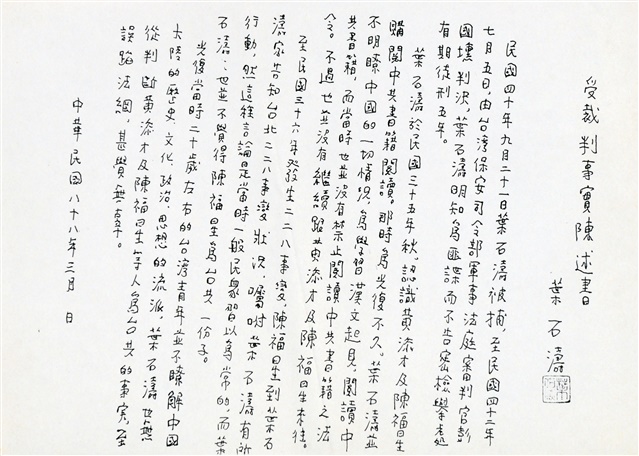 受裁判事實陳述書
葉石濤
民國四十年九月二十一日葉石濤被捕，至民國四十二年
七月五日，由台灣保安司令部軍事法庭審判官彭
國壎判決。葉石濤明知為匪諜而不告密檢舉處
有期徒刑五年。
葉石濤於民國三十五年秋，認識黃添才及陳福星
購閱中共書籍閱讀。那時為光復不久。葉石濤並
不明瞭中國的一切情況，為學習漢文起見，閱讀中
共書籍，而當時也並沒有禁止閱讀中共書籍之法
令。不過也並沒有繼續跟黃添才及陳福星來往。
至民國三十六年發生二二八事變，陳福星到葉石
濤家告知台北二二八事變狀況，囑咐葉石濤有所
行動，然這種言論是當時一般民眾習以為常的，而葉
石濤也並不覺得陳福星為台共一份子。
光復當時二十歲左右的台灣青年並不瞭解中國
大陸的歷史、文化、政治、思想的流派，葉石濤也無
從判斷黃添才及陳福星等人為台共的事實，至
誤蹈法網，甚覺無辜。
中華民國八十八年三月 日